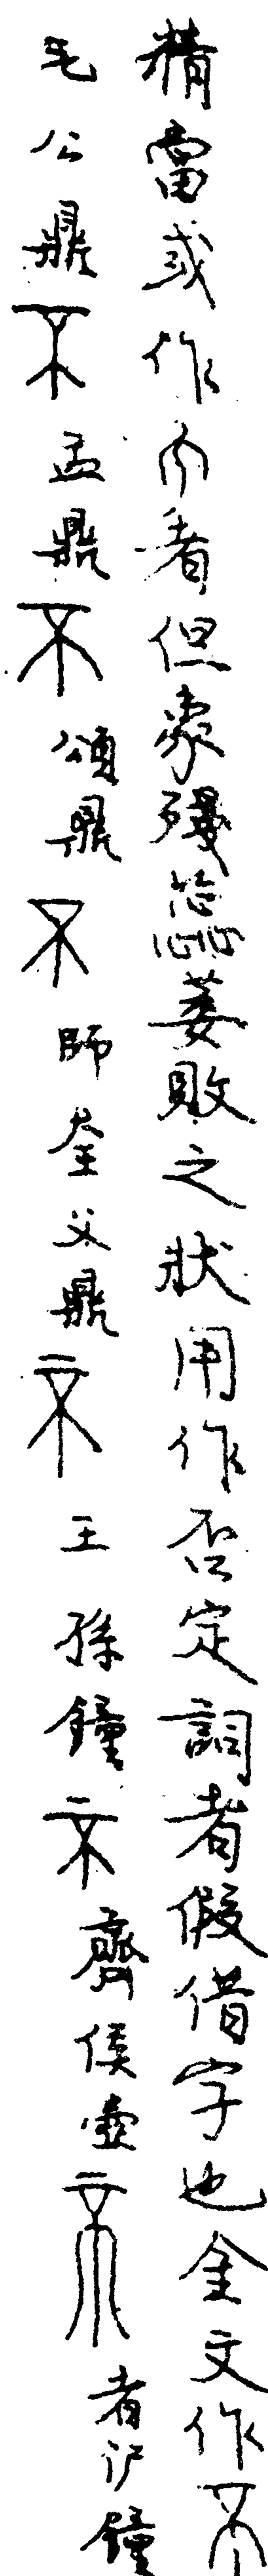 精當或作𠀚者但象殘蕊萎敗之狀用作否定詞者假借字也金文作不
毛公鼎不盂鼎不頌鼎不師㝨父鼎不王孫鐘不齊侯壺不者沪鐘